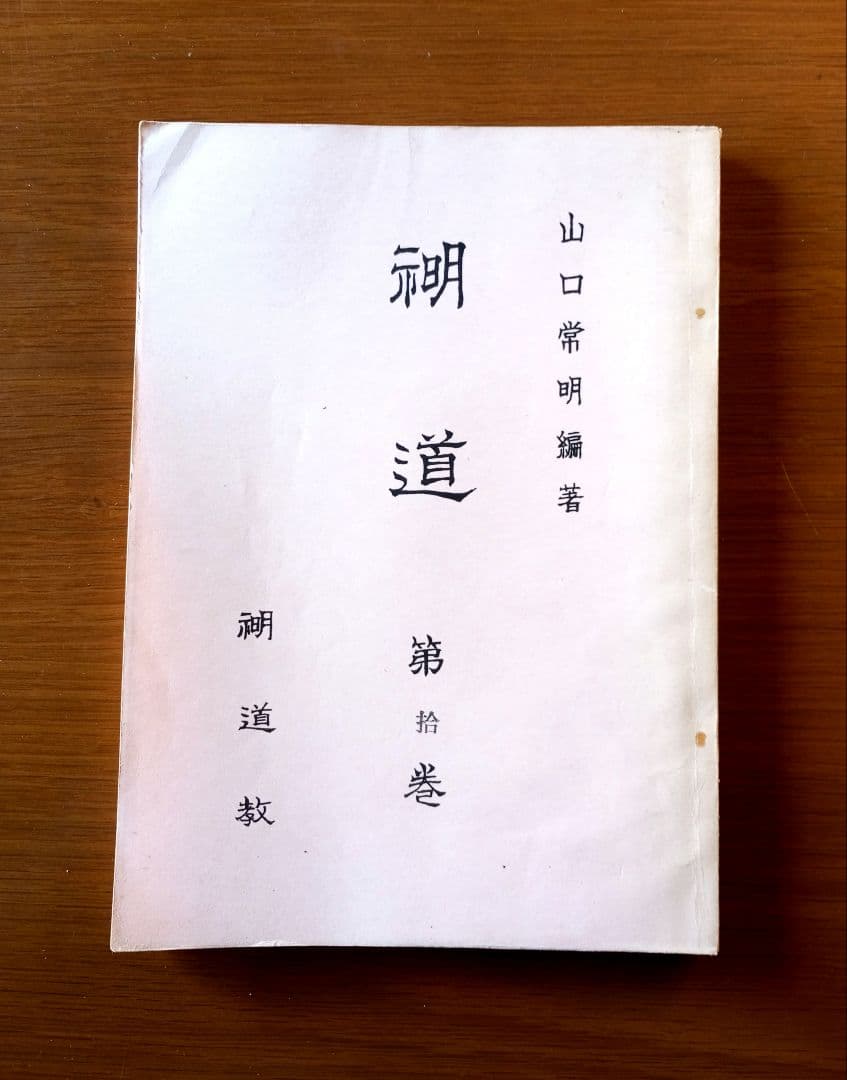 山口常明編著
道
第拾巻
道教